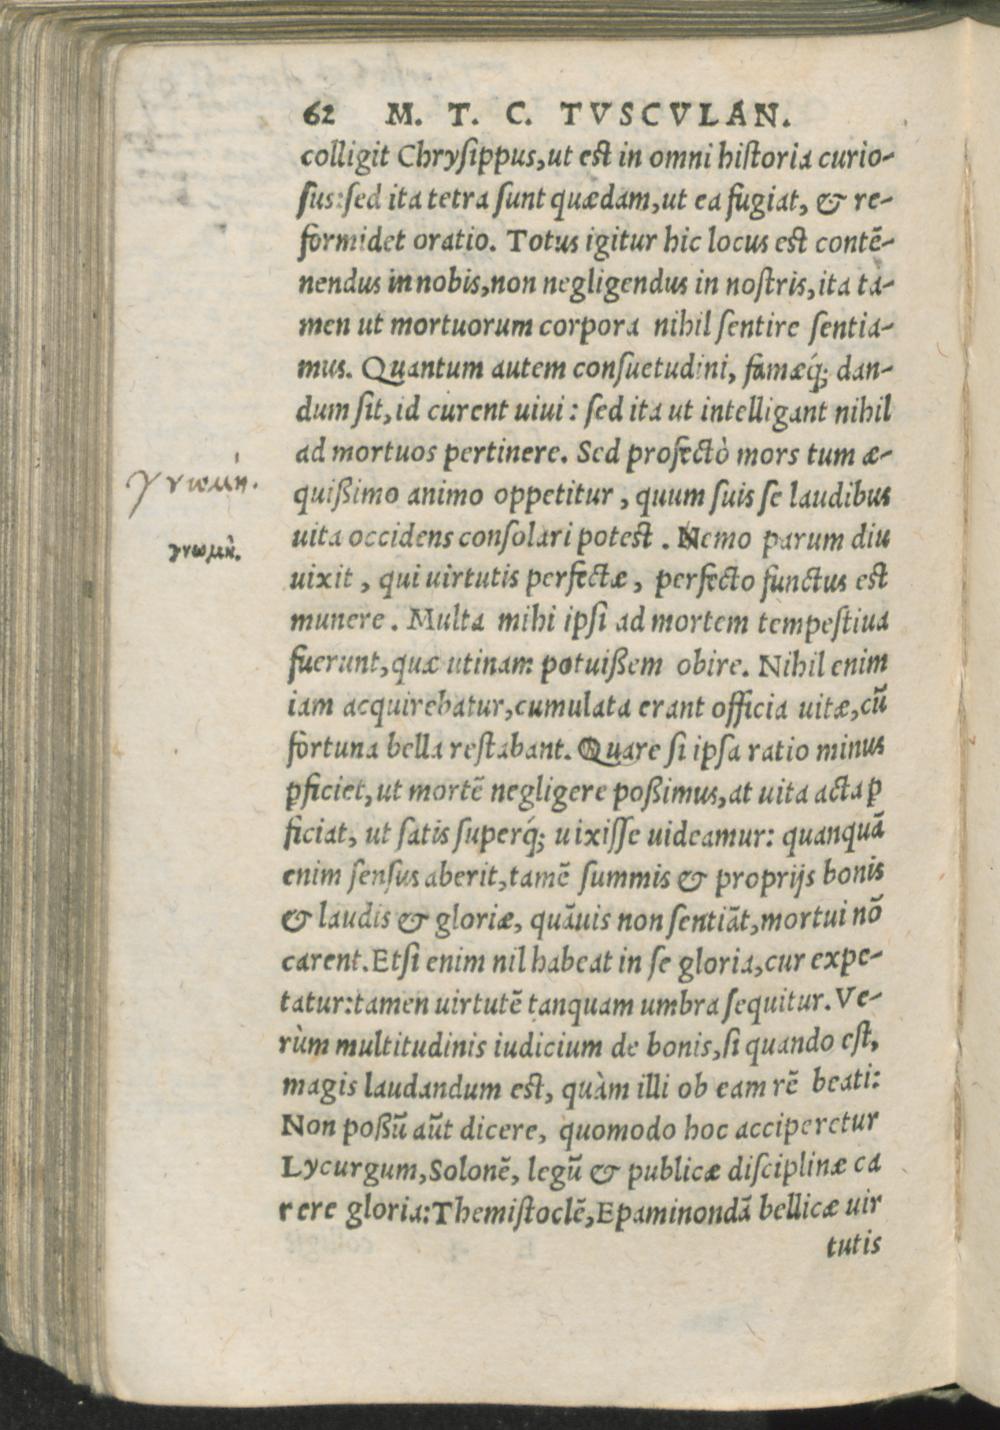 62 M. T. C. TVSCVLAN.
colligit Chrysippus,ut est in omni historia curio-
sus:sed ita tetra sunt quædam,ut ea fugiat, & re-
formidet oratio. Totus igitur hic locus est contē-
nendus in nobis,non negligendus in nostris,ita ta-
men ut mortuorum corpora nihil sentire sentia-
mus. Quantum autem consuetudini, famæq́; dan-
dum sit,id curent uiui: sed ita ut intelligant nihil
ad mortuos pertinere. Sed profectò mors tum æ-
γνωμή.
quißimo animo oppetitur, quum suis se laudibus
uita occidens consolari potest. Nemo parum diu
γνωμὴ.
uixit, qui uirtutis perfectæ, perfecto functus est
munere. Multa mihi ipsi ad mortem tempestiua
fuerunt,quæ utinam potuißem obire. Nihil enim
iam acquirebatur,cumulata erant officia uitæ,cū
fortuna bella restabant. Quare si ipsa ratio minus
ꝑficiet,ut mortē negligere poßimus,at uita acta ꝑ
ficiat, ut satis superq́; uixisse uideamur: quanquā
enim sensus aberit,tamē summis & proprijs bonis
& laudis & gloriæ, quāuis non sentiāt,mortui nō
carent.Etsi enim nil habeat in se gloria,cur expe-
tatur:tamen uirtutē tanquam umbra sequitur.Ve-
rùm multitudinis iudicium de bonis,si quando est,
magis laudandum est, quàm illi ob eam rē beati:
Non poßū aūt dicere, quomodo hoc acciperetur
Lycurgum,Solonē, legū & publicæ disciplinæ ca
rere gloria:Themistoclē,Epaminondā bellicæ uir
tutis